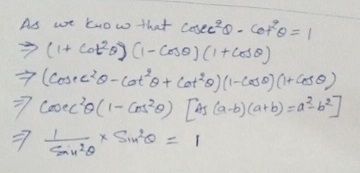 As we know that cosec²θ - cot²θ = 1
⇒ (1 + cot²θ) (1 - cosθ) (1 + cosθ)
⇒ (cosec²θ - cot²θ + cot²θ) (1 - cosθ) (1 + cosθ)
⇒ cosec²θ (1 - cos²θ) [As (a-b) (a+b) = a²-b²]
⇒ 1/sin²θ × sin²θ = 1